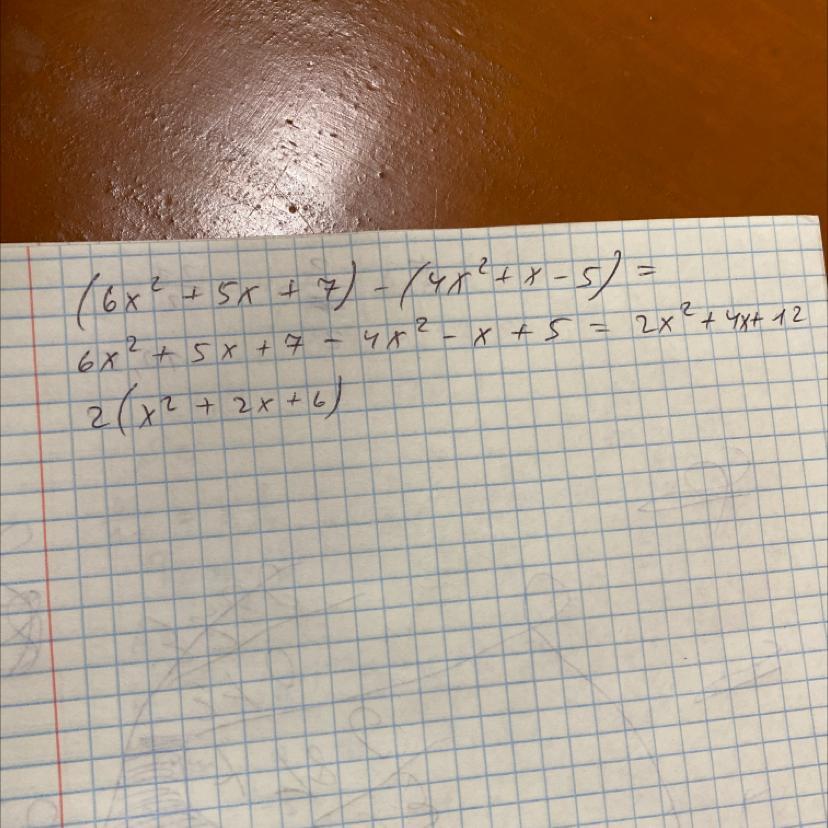 (6x² + 5x + 7) - (4x² + x - 5) =
6x² + 5x + 7 - 4x² - x + 5 = 2x² + 4x + 12
2(x² + 2x + 6)